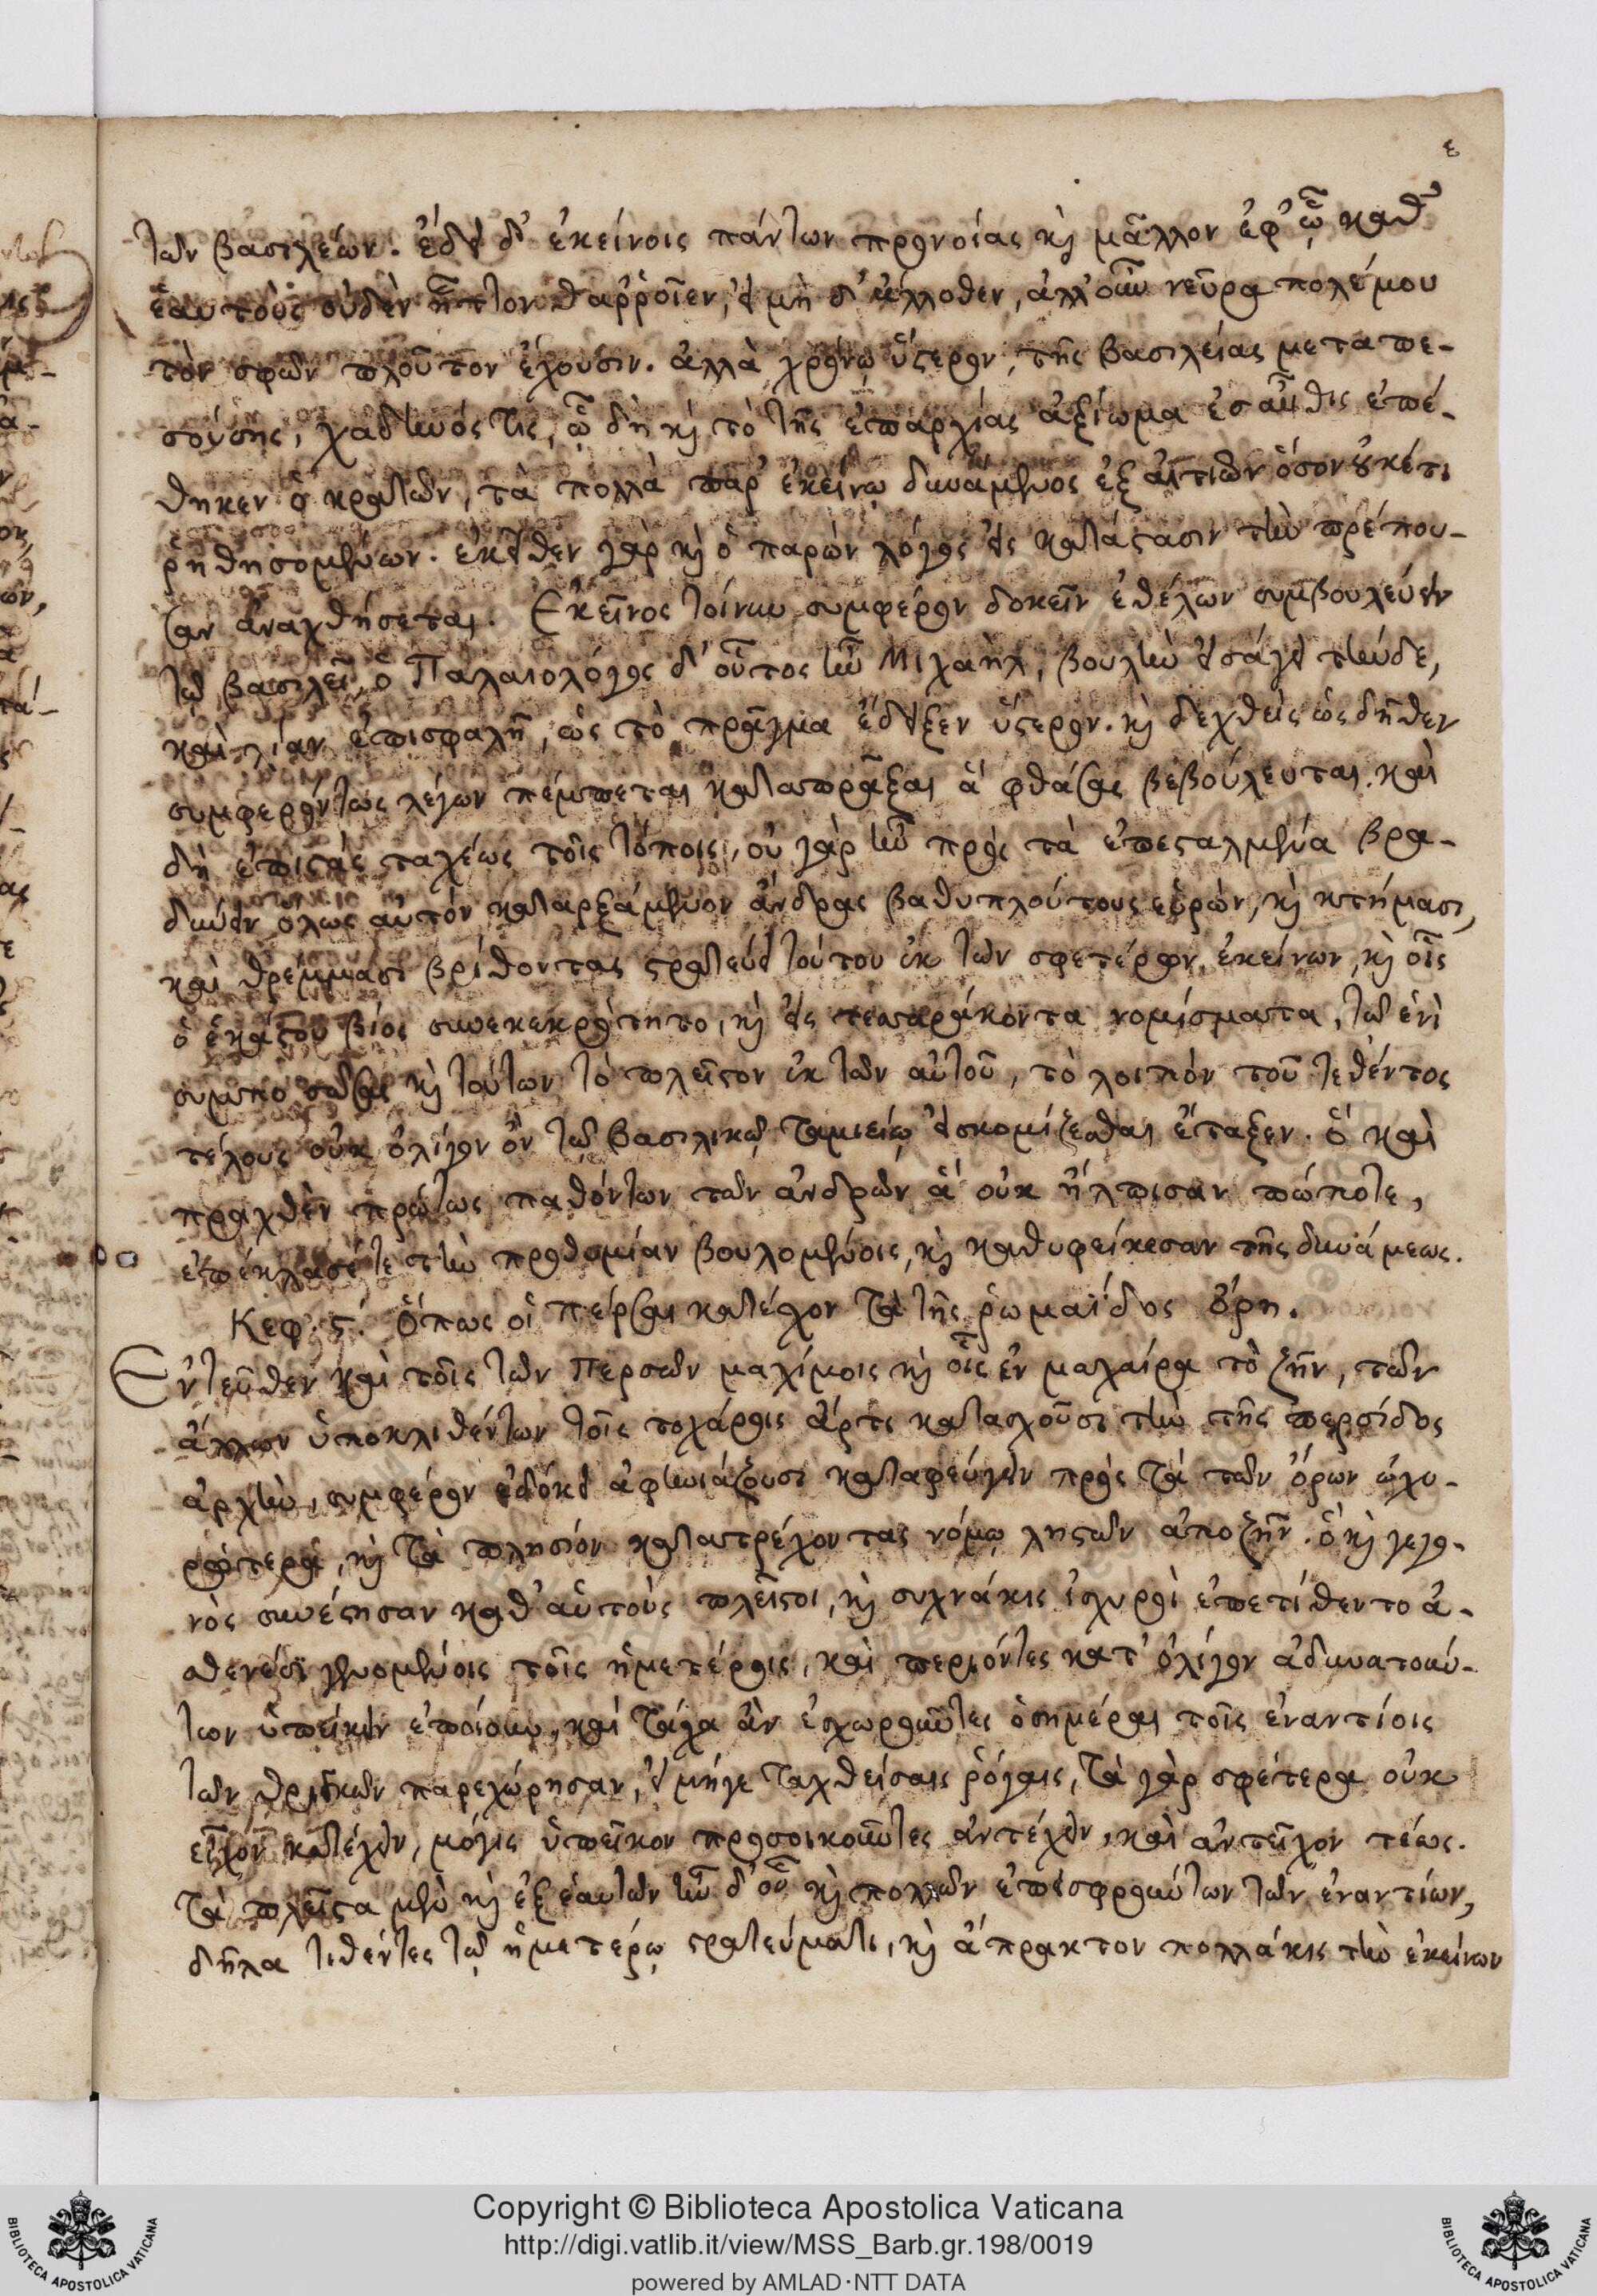 ε
τῶν βασιλέων. ἔδει δ' ἐκείνοις πάντων προνοίας κὶ μᾶλλον ἐφ' ᾧ καθ'
ἑαυτοὺς οὐδὲν ἧττον θαῤῥοῖεν, εἰ μὴ δ' ἄλλοθεν, ἀλλ' οὖν νεῦρα πολέμου
τὸν σφῶν πλοῦτον ἔχουσιν. ἀλλὰ χρόνῳ ὕστερον, τῆς βασιλείας μεταπε-
σούσης, χαδηνός τις, ᾧ δὴ κὶ τὸ τῆς ἐπαρχίας ἀξίωμα ἐσαῦθις ἐπέ-
θηκεν ὁ κρατῶν, τὰ πολλὰ παρ' ἐκείνῳ δυνάμενος ἐξ αἰτιῶν ὅσον οὐκέτι
ῥηθησομένων. ἐκεῖθεν γὰρ κὶ ὁ παρὼν λόγος εἰς κατάστασιν τὴν πρέπου-
σαν ἀναχθήσεται. Ἐκεῖνος τοίνυν συμφέρον δοκεῖν ἐθέλων συμβουλεύειν
τῷ βασιλεῖ, ὁ Παλαιολόγος δ' οὗτος ἦν Μιχαὴλ, βουλὴν εἰσάγει τήνδε,
καὶ λίαν ἐπισφαλῆ, ὡς τὸ πρᾶγμα ἔδειξεν ὕστερον. κὶ δεχθεὶς ὡς δῆθεν
συμφερόντως λέγων πέμπεται καταπρᾶξαι ἃ φθάσας βεβούλευται. καὶ
δὴ ἐπιστὰς ταχέως τοῖς τόποις, οὐ γὰρ ἦν πρὸς τὰ ἐπεσταλμένα βρα-
δύνειν ὅλως αὐτὸν καταρξάμενον ἄνδρας βαθυπλούτους εὑρὼν, κὶ κτήμασι,
καὶ θρέμμασι βρίθοντας στρατεύει τούτου ἐκ τῶν σφετέρων ἐκείνων, κὶ οἷς
ὁ ἑκάστου βίος συνεκεκρότητο, κὶ εἰς τεσσαράκοντα νομίσματα, τῷ ἑνὶ
συμποσώσας κὶ τούτων τὸ πλεῖστον ἐκ τῶν αὐτοῦ, τὸ λοιπὸν τοῦ τεθέντος
τέλους οὐκ ὀλίγον ὂν τῷ βασιλικῷ ταμιείῳ εἰσκομίζεσθαι ἔταξεν. ὃ καὶ
πραχθὲν πρώτως παθόντων τῶν ἀνδρῶν ἃ οὐκ ἤλπισαν πώποτε,
ἐπέκλασέ τε τὴν προθυμίαν βουλομένοις, κὶ καθυφείκεσαν τῆς δυνάμεως.
Κεφ. ϛ'. Ὅπως οἱ πέρσαι κατέσχον τὰ τῆς ῥωμαΐδος ὄρη.
Ἐντεῦθεν καὶ τοῖς τῶν Περσῶν μαχίμοις κὶ οἷς ἐν μαχαίρᾳ τὸ ζῆν, τῶν
ἄλλων ὑποκλιθέντων τοῖς τοχάροις ἄρτι κατασχοῦσι τὴν τῆς περσίδος
ἀρχὴν, συμφέρον ἐδόκει ἀφηνιάζουσι καταφεύγειν πρὸς τὰ τῶν ὄρων ὀχυ-
ρώτερα, κὶ τὰ πλησίον κατατρέχοντας νόμῳ λῃστῶν ἀποζῆν. ὃ κὶ γεγο-
νὸς συνέστησαν καθ' αὑτοὺς πλεῖστοι, κὶ συχνάκις ἰσχυροὶ ἐπετίθεντο ἀ-
σθενέσι γενομένοις τοῖς ἡμετέροις, καὶ περιόντες κατ' ὀλίγον ἀδυνατούν-
των ὑπείκειν ἐποίουν, καὶ τάχα ἂν ἐκχωροῦντες ὁσημέραι τοῖς ἐναντίοις
τῶν θριγκῶν παρεχώρησαν, εἰ μήγε ταχθείσαις ῥόγαις, τὰ γὰρ σφέτερα οὐκ
εἶχον κατέχειν, μόγις ὑπεῖκον προσοικοῦντες ἀντέχειν, καὶ ἀντεῖχον τέως.
τὰ πλεῖστα μὲν κὶ ἐξ ἑαυτῶν ἦν δ' οὗ κὶ πολλῶν ἐπεισφρούντων τῶν ἐναντίων,
δῆλα τιθέντες τῷ ἡμετέρῳ στρατεύματι, κὶ ἄπρακτον πολλάκις τὴν ἐκείνων
Copyright © Biblioteca Apostolica Vaticana
http://digi.vatlib.it/view/MSS_Barb.gr.198/0019
powered by AMLAD·NTT DATA
BIBLIOTECA APOSTOLICA VATICANA
BIBLIOTECA APOSTOLICA VATICANA